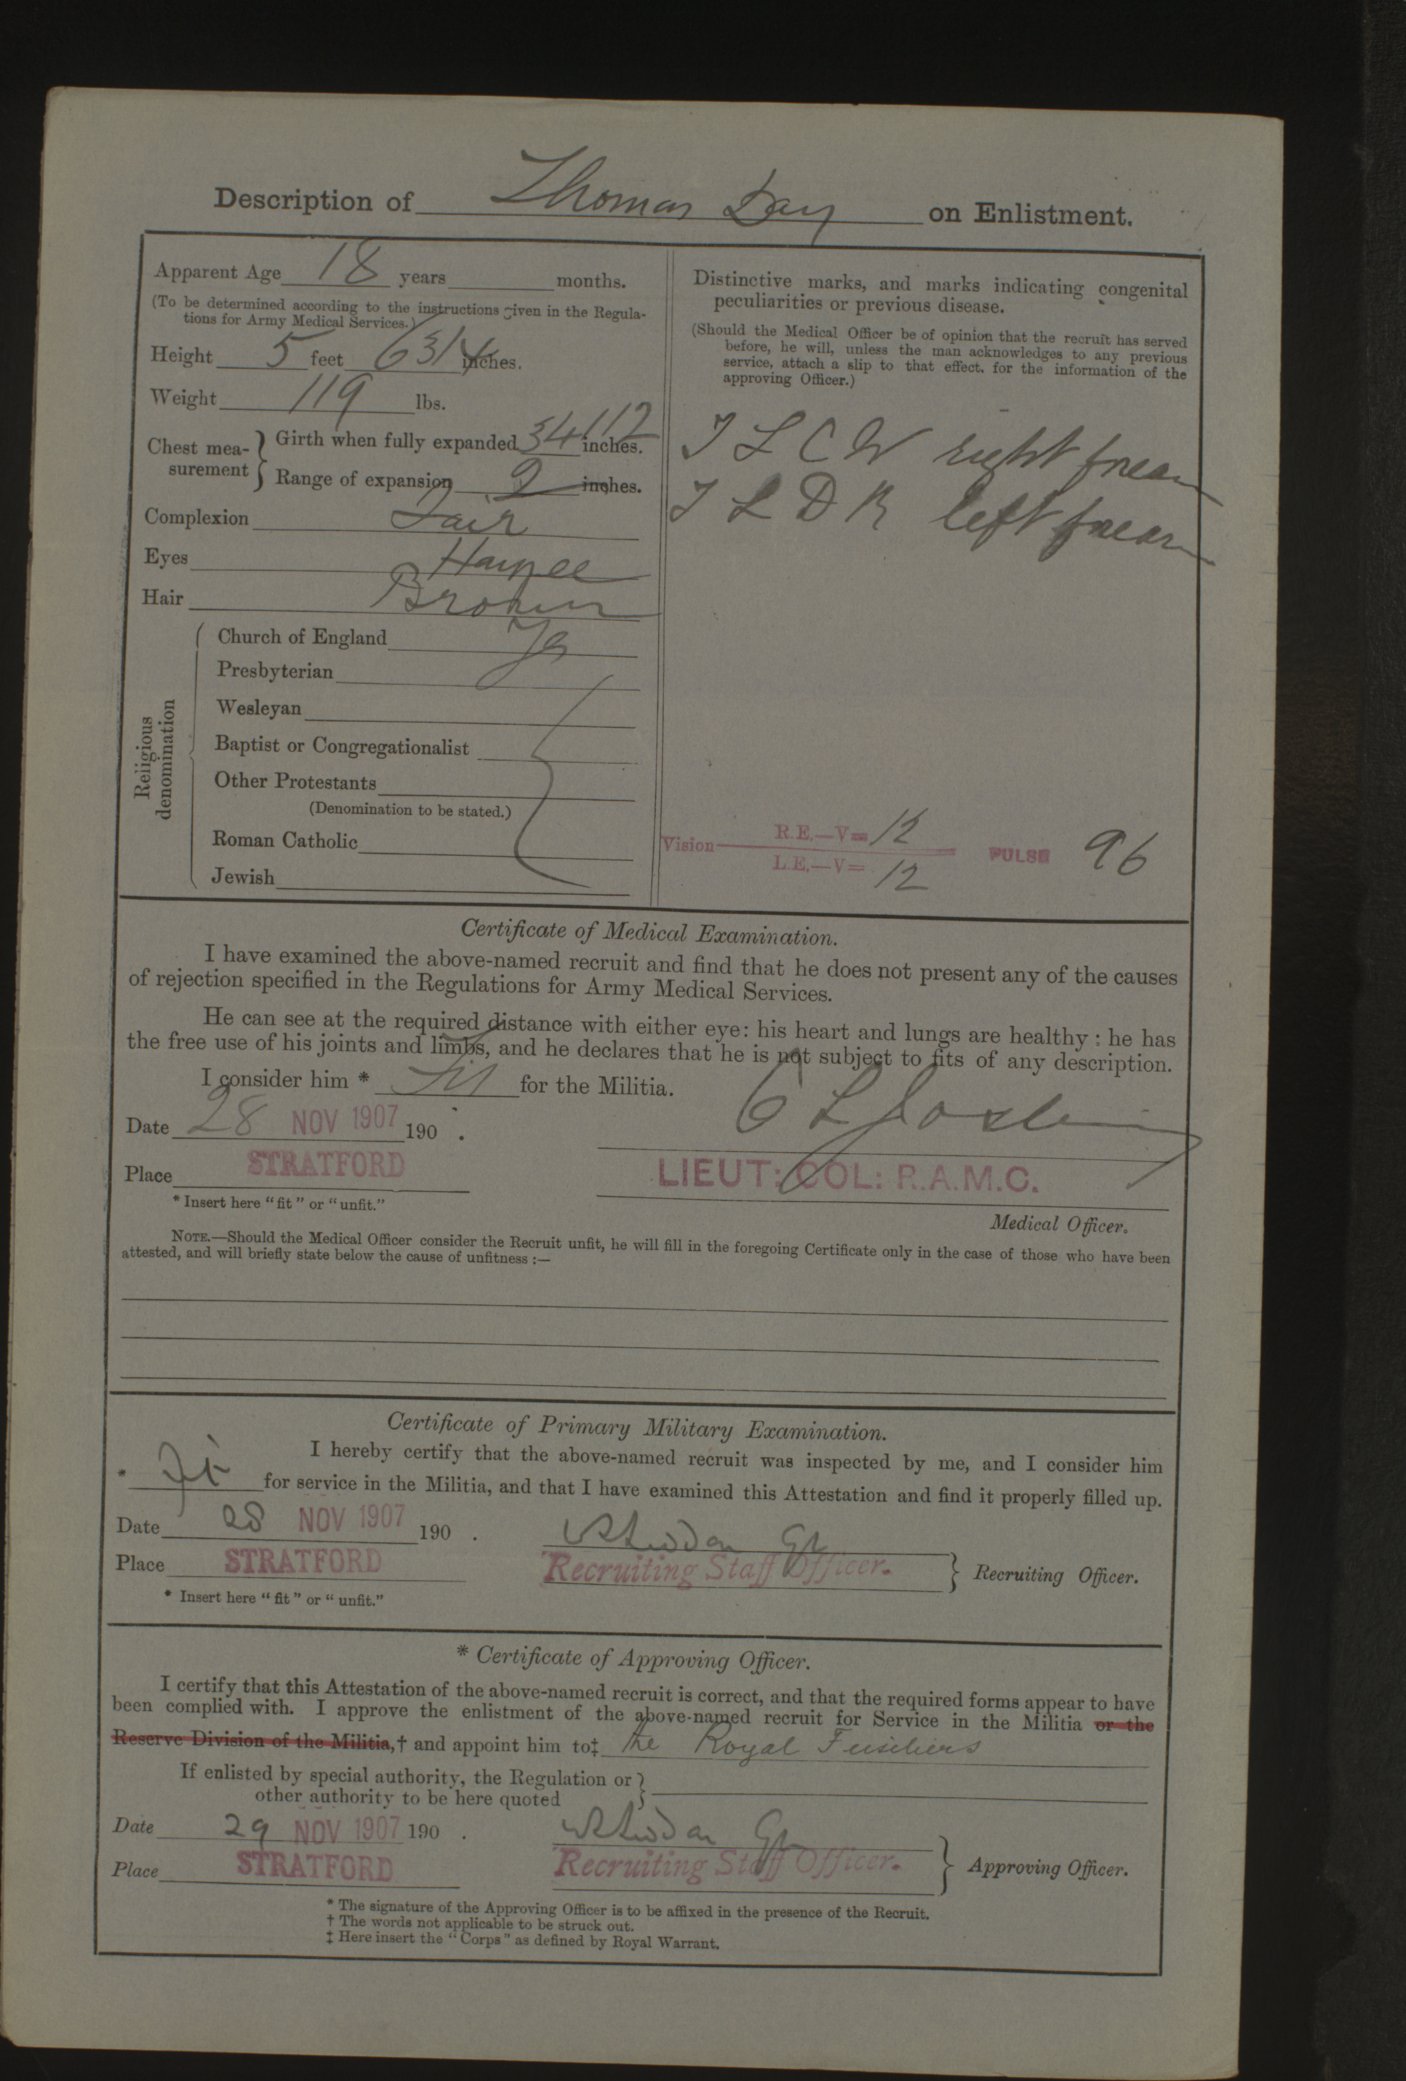 Description of Thomas Day on Enlistment.
Apparent Age 18 years months.
(To be determined according to the instructions given in the Regula-
tions for Army Medical Services.)
Height 5 feet 6 3/4 inches.
Weight 119 lbs.
Chest mea-
surement
Girth when fully expanded 34 1/2 inches.
Range of expansion 2 inches.
Complexion Fair
Eyes
Hair Brown
Religious
denomination
Church of England Yes
Presbyterian
Wesleyan
Baptist or Congregationalist
Other Protestants
(Denomination to be stated.)
Roman Catholic
Jewish
Distinctive marks, and marks indicating congenital
peculiarities or previous disease.
(Should the Medical Officer be of opinion that the recruit has served
before, he will, unless the man acknowledges to any previous
service, attach a slip to that effect, for the information of the
approving Officer.)
right forearm
left forearm
Vision R.E.—V= 12
L.E.—V= 12
PULSE 96
Certificate of Medical Examination.
I have examined the above-named recruit and find that he does not present any of the causes
of rejection specified in the Regulations for Army Medical Services.
He can see at the required distance with either eye: his heart and lungs are healthy: he has
the free use of his joints and limbs, and he declares that he is not subject to fits of any description.
I consider him * Fit for the Militia.
Date 28 NOV 1907 190 .
Place STRATFORD
* Insert here "fit" or "unfit."
LIEUT: COL: R.A.M.C.
Medical Officer.
NOTE.—Should the Medical Officer consider the Recruit unfit, he will fill in the foregoing Certificate only in the case of those who have been
attested, and will briefly state below the cause of unfitness:—
Certificate of Primary Military Examination.
I hereby certify that the above-named recruit was inspected by me, and I consider him
* Fit for service in the Militia, and that I have examined this Attestation and find it properly filled up.
Date 28 NOV 1907 190 .
Place STRATFORD
* Insert here "fit" or "unfit."
Recruiting Staff Officer.
Recruiting Officer.
* Certificate of Approving Officer.
I certify that this Attestation of the above-named recruit is correct, and that the required forms appear to have
been complied with. I approve the enlistment of the above-named recruit for Service in the Militia or the
Reserve Division of the Militia,† and appoint him to‡ the Royal Fusiliers
If enlisted by special authority, the Regulation or
other authority to be here quoted
Date 29 NOV 1907 190 .
Place STRATFORD
Recruiting Staff Officer.
Approving Officer.
* The signature of the Approving Officer is to be affixed in the presence of the Recruit.
† The words not applicable to be struck out.
‡ Here insert the "Corps" as defined by Royal Warrant.